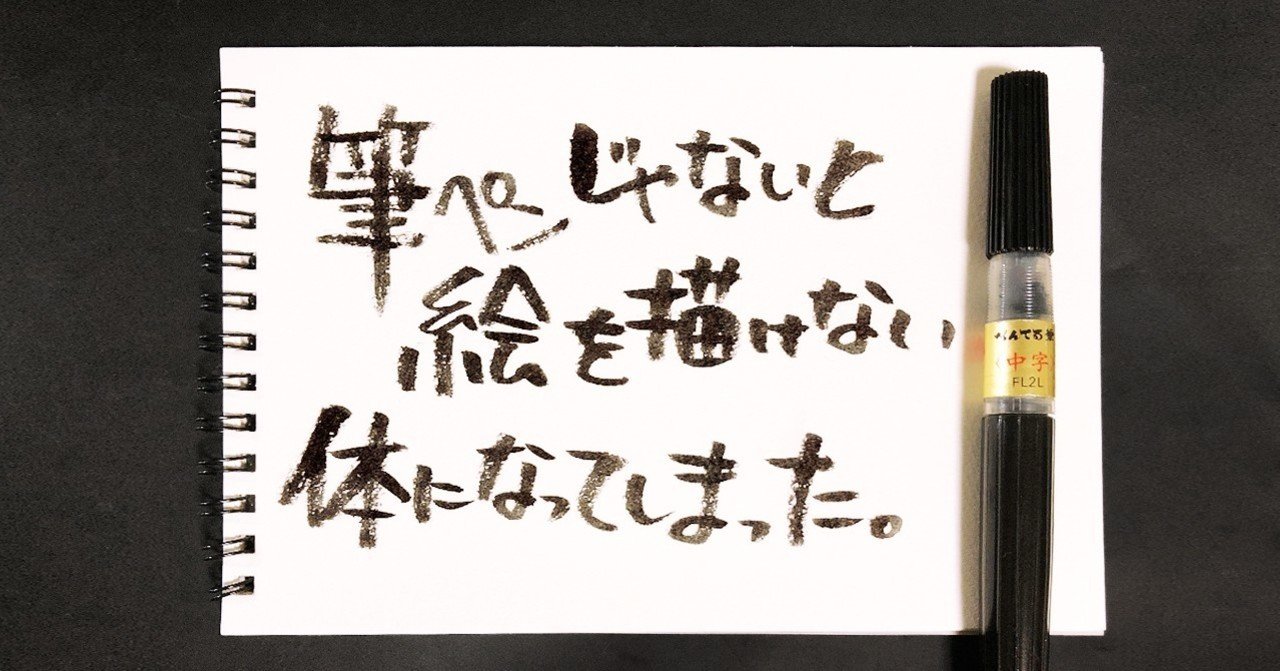 筆ペンじゃないと
絵を描けない
体になってしまった。
ぺんてる筆
中字
FL2L